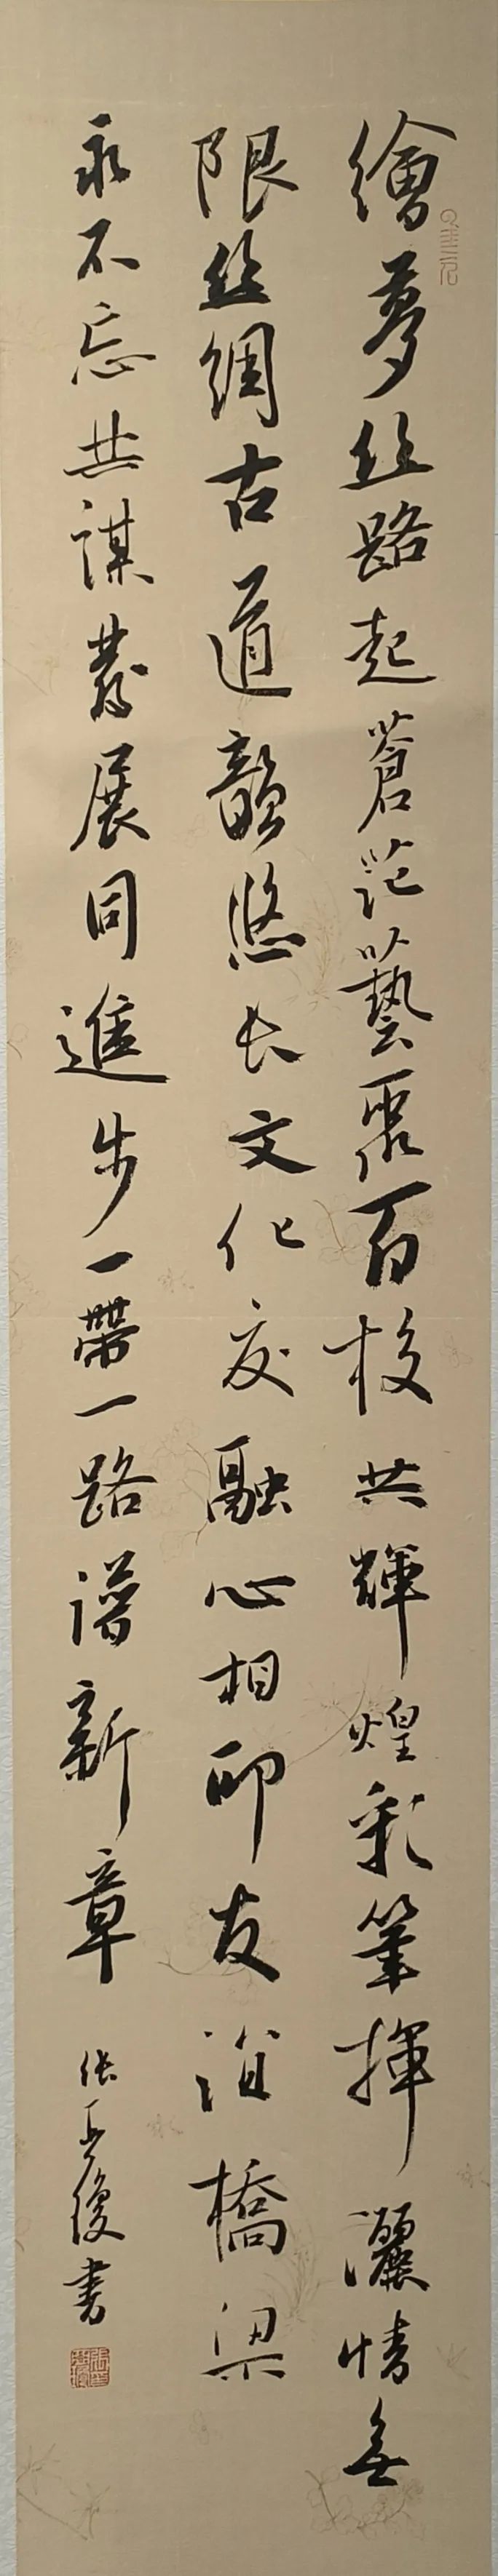 繪夢丝路起蒼茫藝聚百校共輝煌彩筆揮灑情無
限丝綢古道韻悠长文化交融心相印友誼橋梁
永不忘共謀發展同進步一帶一路譜新章
张 书